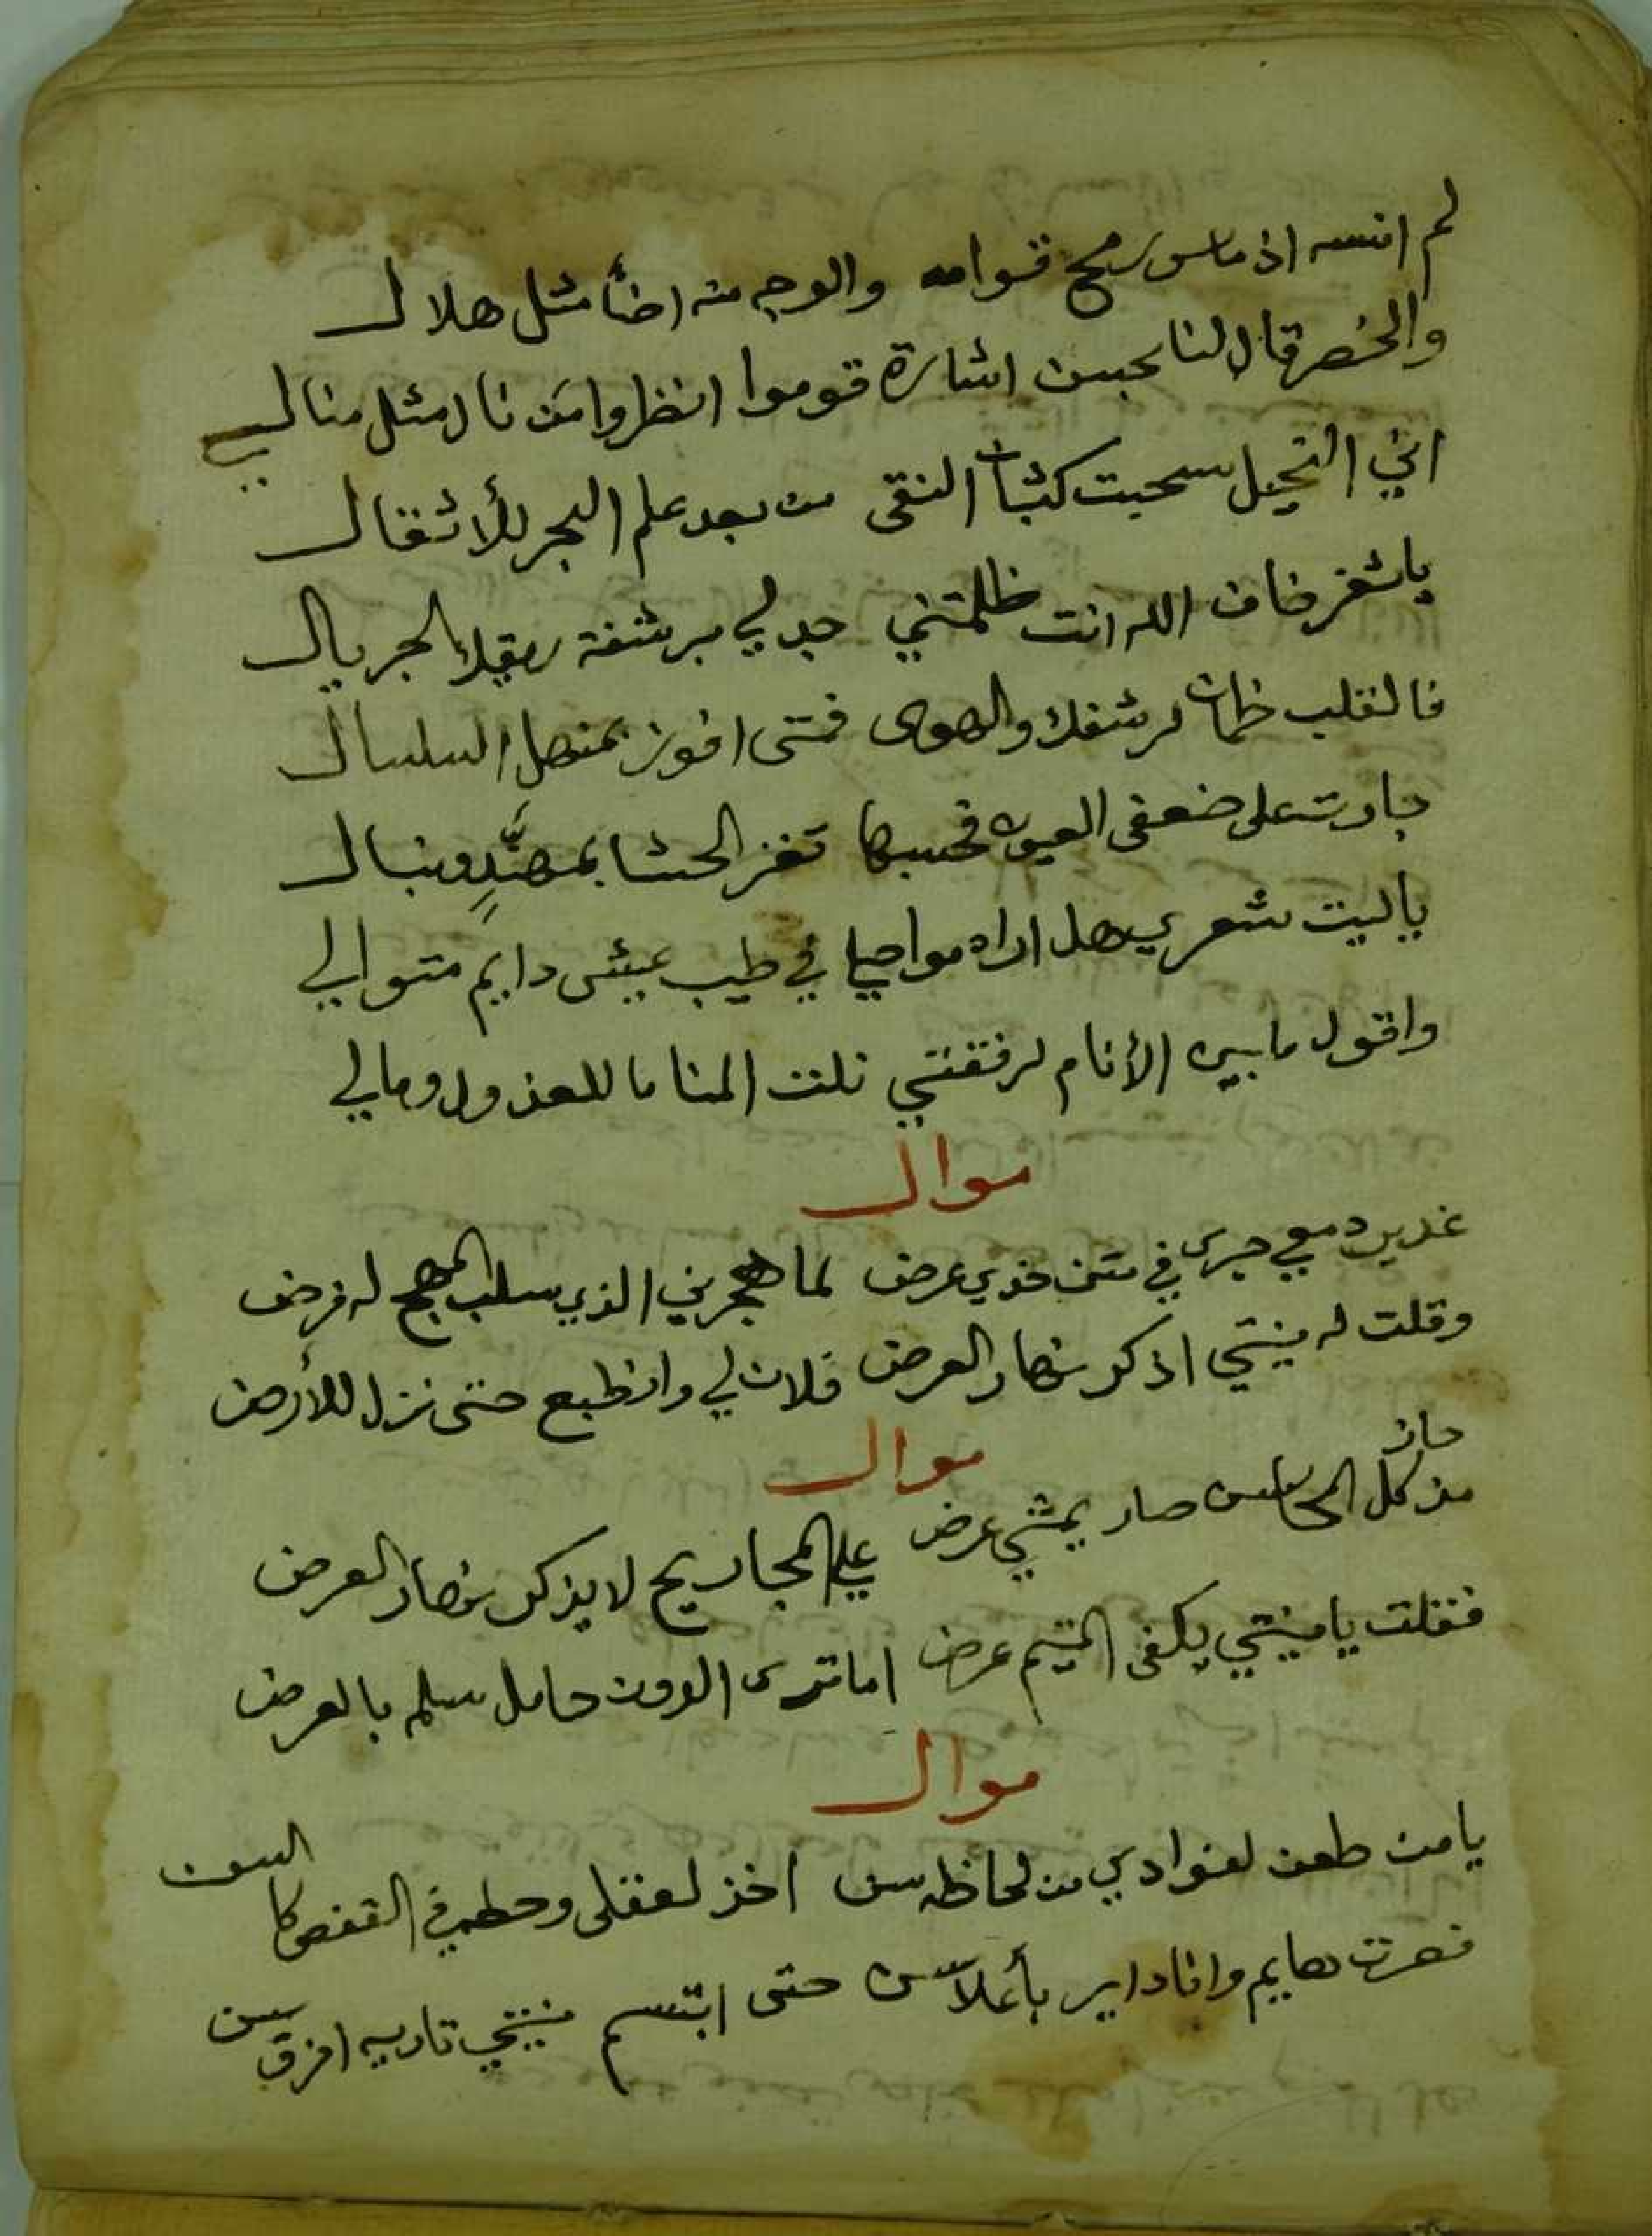 لم انسه اذ ماس رمح قوامه والوجه منه اضأ مثل هلال
والخصر قال لنا بحسن اشارة قوموا انظروا من نال مثل منالي
اني النحيل سحبت كثبان النقى من بعد علم الجر للأثقال
يا ثغر خاف الله انت ظلمتني جد لي برشفة ريقك الجريال
فالقلب ظمان لرشفك والهوى فمتى افوز بمنهل السلسال
جارت على ضعفى العيون فحسبها تغز الحشا بمهنّدٍ ونبال
يا ليت شعري هل اراه مواصلي في طيب عيش دايم متوالي
واقول ما بين الأنام لرفقتي نلت المنا ما للعذول ومالي
موال
غدير دمعي جرى في متن خدي عرض لما هجرني الذي سلب المهج له فرض
وقلت له منيتي اذكر نهار العرض فلان لي وانطبع حتى نزل للأرض
موال
حاز
مذ كمل المحاسن صار يمشي عرض على المجاريح لا يذكر نهار العرض
فقلت يا منيتي يكفى المتيم عرض اما ترى الدون حامل سلمه بالعرض
موال
يا من طعن لفوادي من لحاظه سن اخذ لعقلى وحطه في القفص كا السن
فصرت هايم وانا داير بأعلا سن حتى ابتسم منيتي تاريه افرق سن